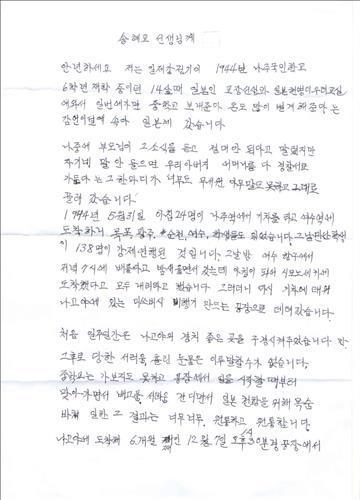 송혜교 선생님께
안녕하세요 저는 일제강점기에 1944년 나주국민학교
6학년 재학 중이던 14살때 일본인 교장선생과 일본헌병이 우리교실
에와서 일본에가면 중학교 보내준다 돈도 많이 벌게해준다는
감언이설에 속아 일본에 갔습니다
나중에 부모님이 그소식을 듣고 절대안된다고 말렸지만
자기네 말 안 들으면 우리아버지 어머니를 다 경찰서로
가둔다는 그한마디가 너무도 무서워 아무말도 못하고 그대로
끌려 갔습니다.
1944년 5월31일 아침 24명이 나주역에서 기차를 타고 여수역에
도착하니 목포, 광주, 순천, 여수, 학생들도 있었습니다. 그날 만난 학생
이 138명이 강제연행된 것입니다. 그날밤 여수 항구에서
저녁 7시에 배를타고 밤새울면서 갔는데 아침이 되니 시모노세키에
도착했다고 모두 내리라고 했습니다 그러더니 다시 기차에 태워
나고야에 있는 미쓰비시 비행기 만드는 공장으로 데려갔습니다
처음 일주일간은 나고야의 경치 좋은 곳을 구경시켜주었습니다
그후로 당한 서러움 흘린 눈물은 이루말할수가 없습니다.
중학교는 가보지도 못하고 공장에서 일을 시작할 때부터
맞아가면서 배고픔, 서러움 견디면서 일본 전쟁을 위해 목숨
바쳐 일한 그 결과는 너무너무 원통하고 원통합니다.
나고야에 도착해 6개월 12월 7일 오후 1시 30분경 공장에서